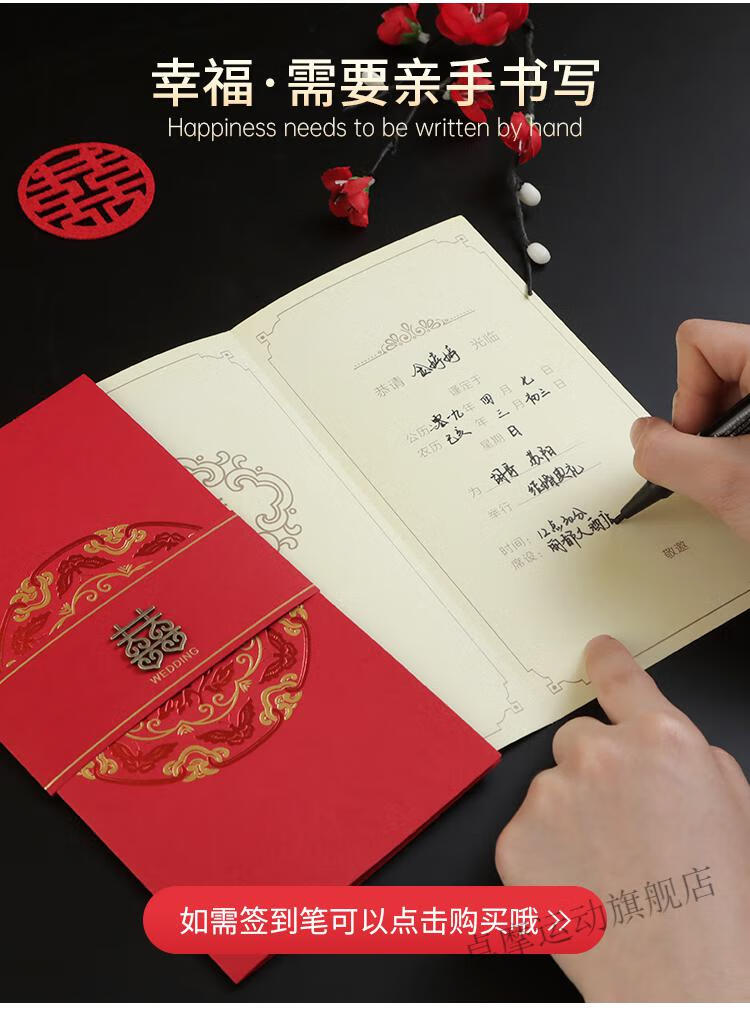 幸福·需要亲手书写
Happiness needs to be written by hand
恭请 金婷婷 光临
谨定于
公历 二零一九 年 四 月 七 日
农历 己亥 年 三 月 初三 日
星期 日
为 胡哥 苏阳
举行 结婚典礼
时间: 12点30分
席设: 丽都大酒店
敬邀
WEDDING
如需签到笔可以点击购买哦 >>
卓摩运动旗舰店